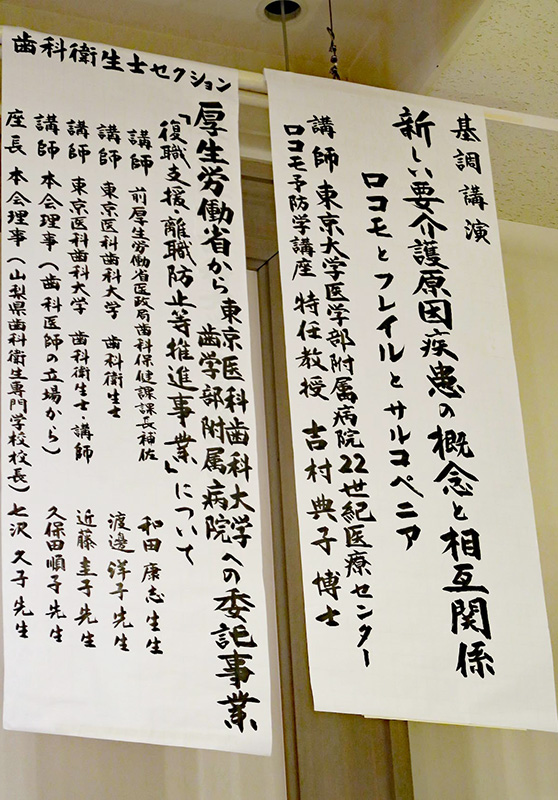 基調講演
新しい要介護原因疾患の概念と相互関係
ロコモとフレイルとサルコペニア
講師 東京大学医学部附属病院22世紀医療センター
ロコモ予防学講座 特任教授 吉村典子 博士
歯科衛生士セクション
厚生労働省から東京医科歯科大学
歯学部附属病院への委託事業
「復職支援・離職防止等推進事業」について
講師 前厚生労働省医政局歯科保健課課長補佐 和田康志先生
講師 東京医科歯科大学 歯科衛生士 渡邊洋子先生
講師 東京医科歯科大学 歯科衛生士・講師 近藤圭子先生
講師 本会理事(歯科医師の立場から) 久保田順子先生
座長 本会理事(山梨県歯科衛生専門学校校長) 七沢久子先生